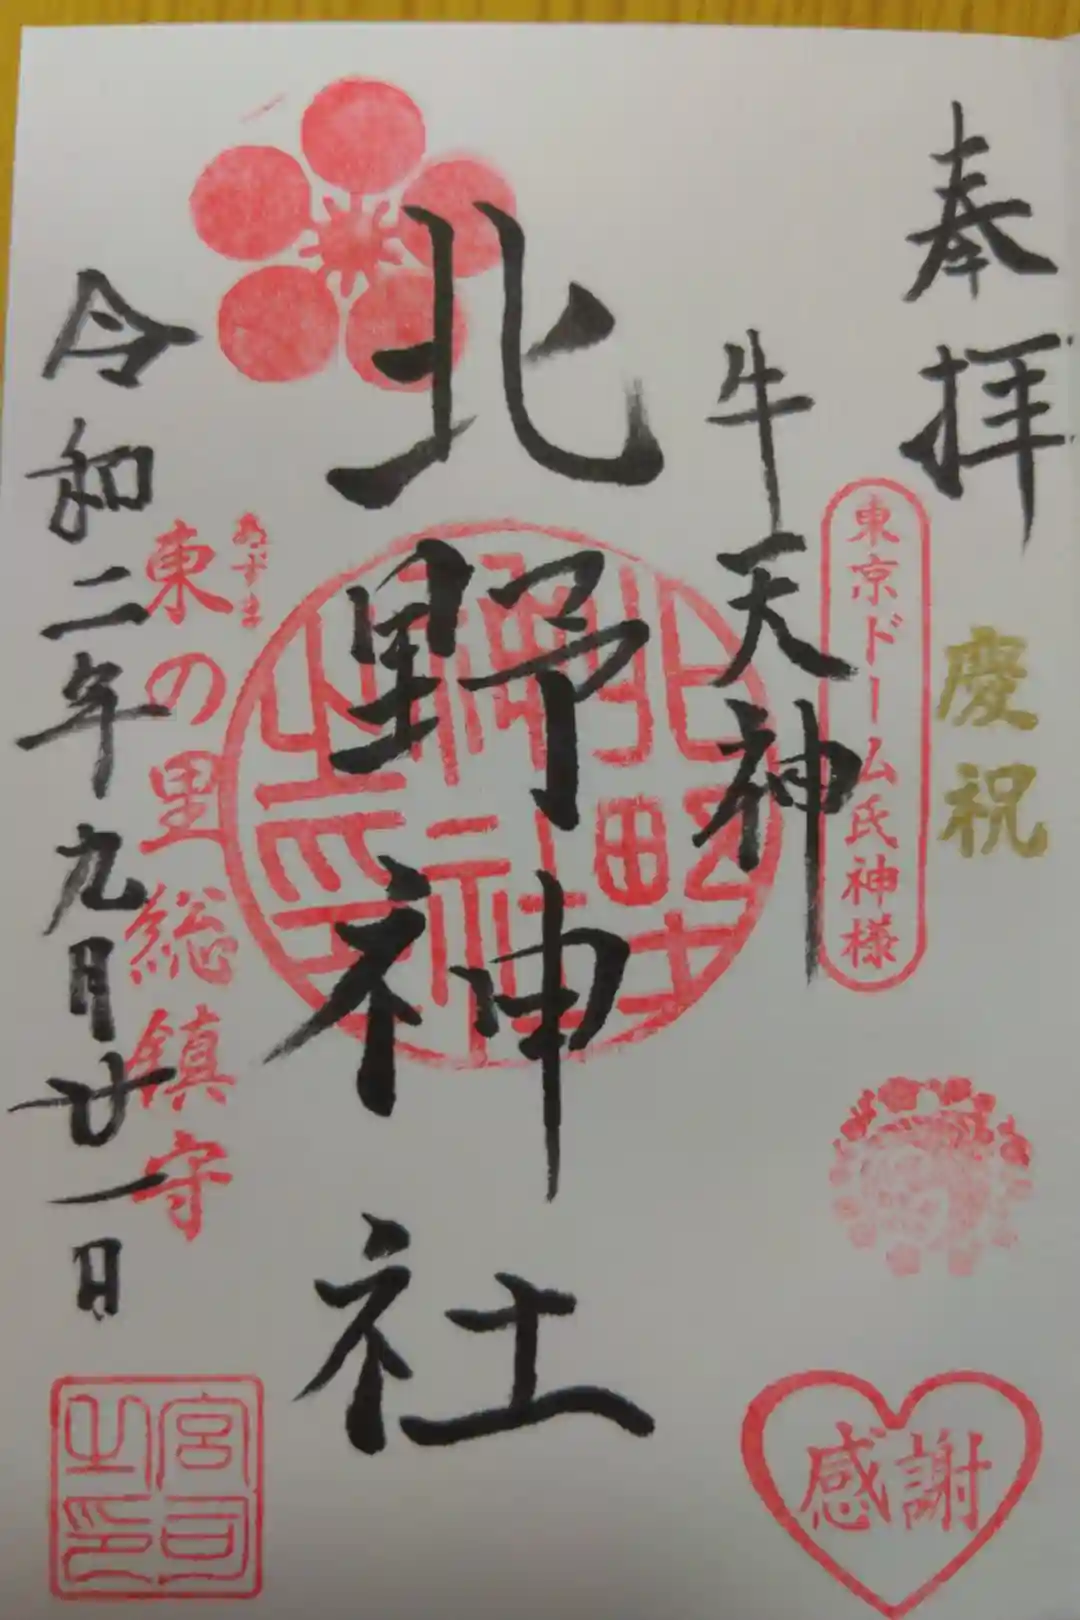 奉拝
慶祝
東京ドーム氏神様
牛天神
北野神社
あずま
東の里総鎮守
令和二年九月廿一日
感謝
宮司之印